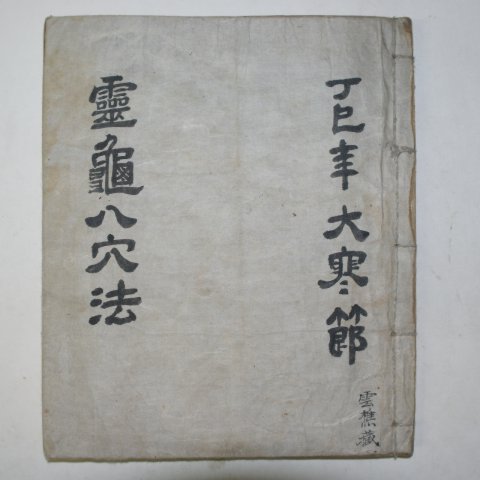 丁巳年大寒節
雲樵藏
靈龜八穴法